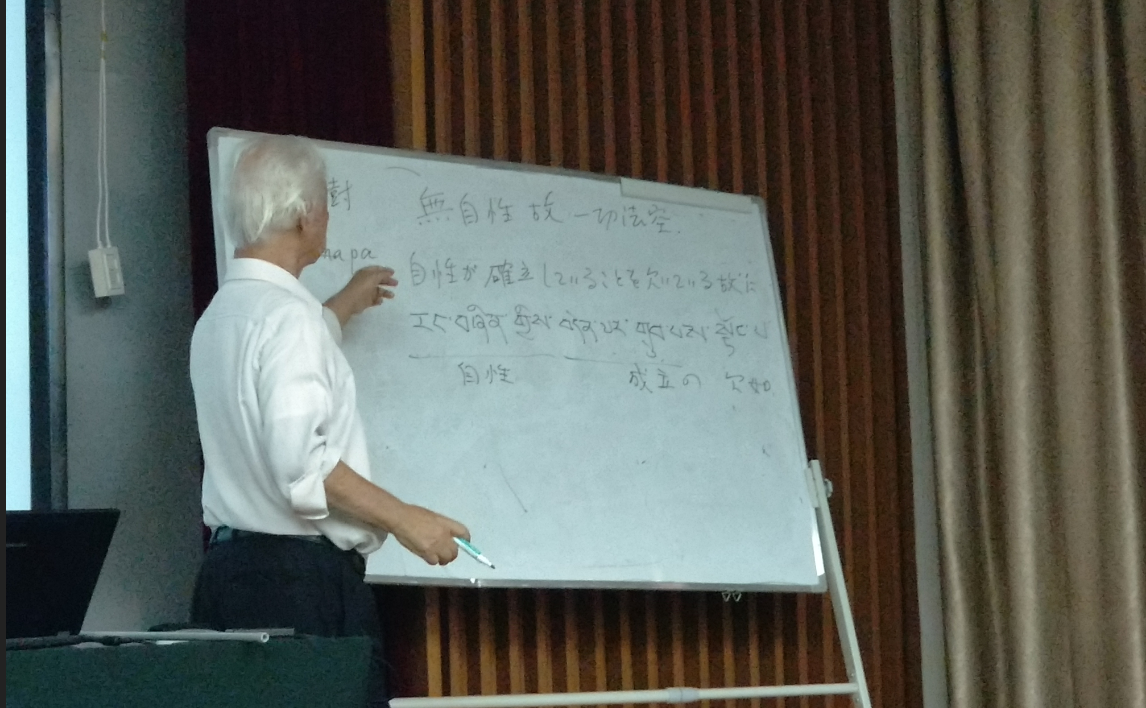 無自性故一切法空.
自性が確立していることを欠いている故に
རང་བཞིན་གྱིས་བདེན་པར་གྲུབ་པས་སྟོང་པ
自性 成立の 欠如